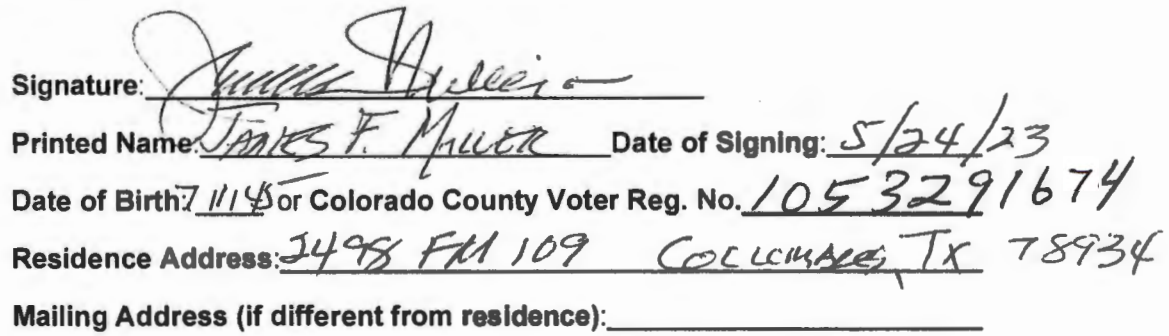 Signature: James Miller
Printed Name: JAMES F. MILLER Date of Signing: 5/24/23
Date of Birth: 7/11/45 or Colorado County Voter Reg. No. 1053291674
Residence Address: 2498 FM 109 COLUMBUS, TX 78934
Mailing Address (if different from residence):